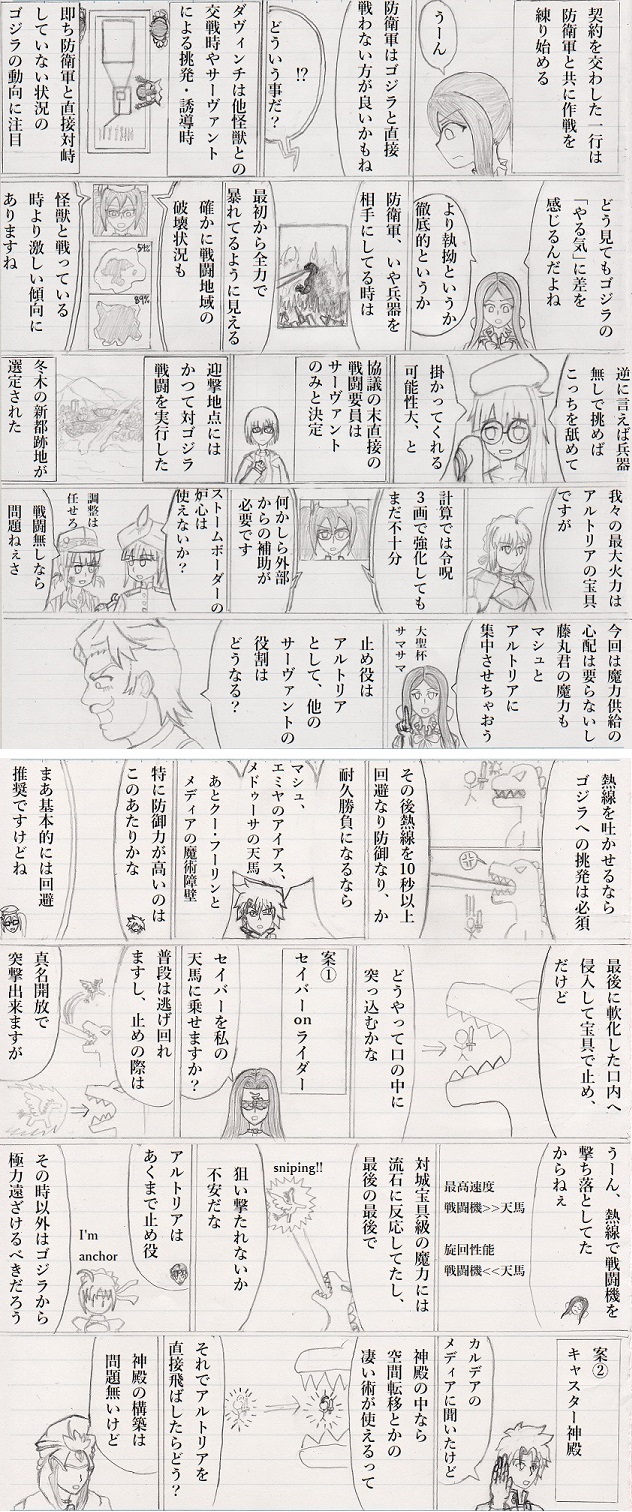 契約を交わした一行は
防衛軍と共に作戦を
練り始める
うーん
防衛軍はゴジラと直接
戦わない方が良いかもね
!?
どういう事だ?
ダヴィンチは他怪獣との
交戦時やサーヴァント
による挑発・誘導時
即ち防衛軍と直接対峙
していない状況の
ゴジラの動向に注目
どう見てもゴジラの
「やる気」に差を
感じるんだよね
より執拗というか
徹底的というか
防衛軍、いや兵器を
相手にしてる時は
最初から全力で
暴れてるように見える
確かに戦闘地域の
破壊状況も
54%
89%
怪獣と戦っている
時より激しい傾向に
ありますね
逆に言えば兵器
無しで挑めば
こっちを舐めて
掛かってくれる
可能性大、と
協議の末直接の
戦闘要員は
サーヴァント
のみと決定
迎撃地点には
かつて対ゴジラ
戦闘を実行した
冬木の新都跡地が
選定された
我々の最大火力は
アルトリアの宝具
ですが
計算では令呪
3画で強化しても
まだ不十分
何かしら外部
からの補助が
必要です
ストームボーダーの
炉心は
使えないか?
調整は
任せろ
戦闘無しなら
問題ねぇさ
今回は魔力供給の
心配は要らないし
藤丸君の魔力も
マシュと
アルトリアに
集中させちゃおう
大聖杯
サマサマ
止め役は
アルトリア
として、他の
サーヴァントの
役割は
どうなる?
熱線を吐かせるなら
ゴジラへの挑発は必須
その後熱線を10秒以上
回避なり防御なり、か
耐久勝負になるなら
マシュ、
エミヤのアイアス、
メドゥーサの天馬
あとクー・フーリンと
メディアの魔術障壁
特に防御力が高いのは
このあたりかな
まあ基本的には回避
推奨ですけどね
最後に軟化した口内へ
侵入して宝具で止め、
だけど
どうやって口の中に
突っ込むかな
案①
セイバーonライダー
セイバーを私の
天馬に乗せますか?
普段は逃げ回れ
ますし、止めの際は
真名開放で
突撃出来ますが
うーん、熱線で戦闘機を
撃ち落としてた
からねぇ
最高速度
戦闘機>>天馬
旋回性能
戦闘機<<天馬
対城宝具級の魔力には
流石に反応してたし、
最後の最後で
sniping!!
狙い撃たれないか
不安だな
アルトリアは
あくまで止め役
I'm
anchor
その時以外はゴジラから
極力遠ざけるべきだろう
案②
キャスター神殿
カルデアの
メディアに聞いたけど
神殿の中なら
空間転移とかの
凄い術が使えるって
それでアルトリアを
直接飛ばしたらどう?
神殿の構築は
問題無いけど